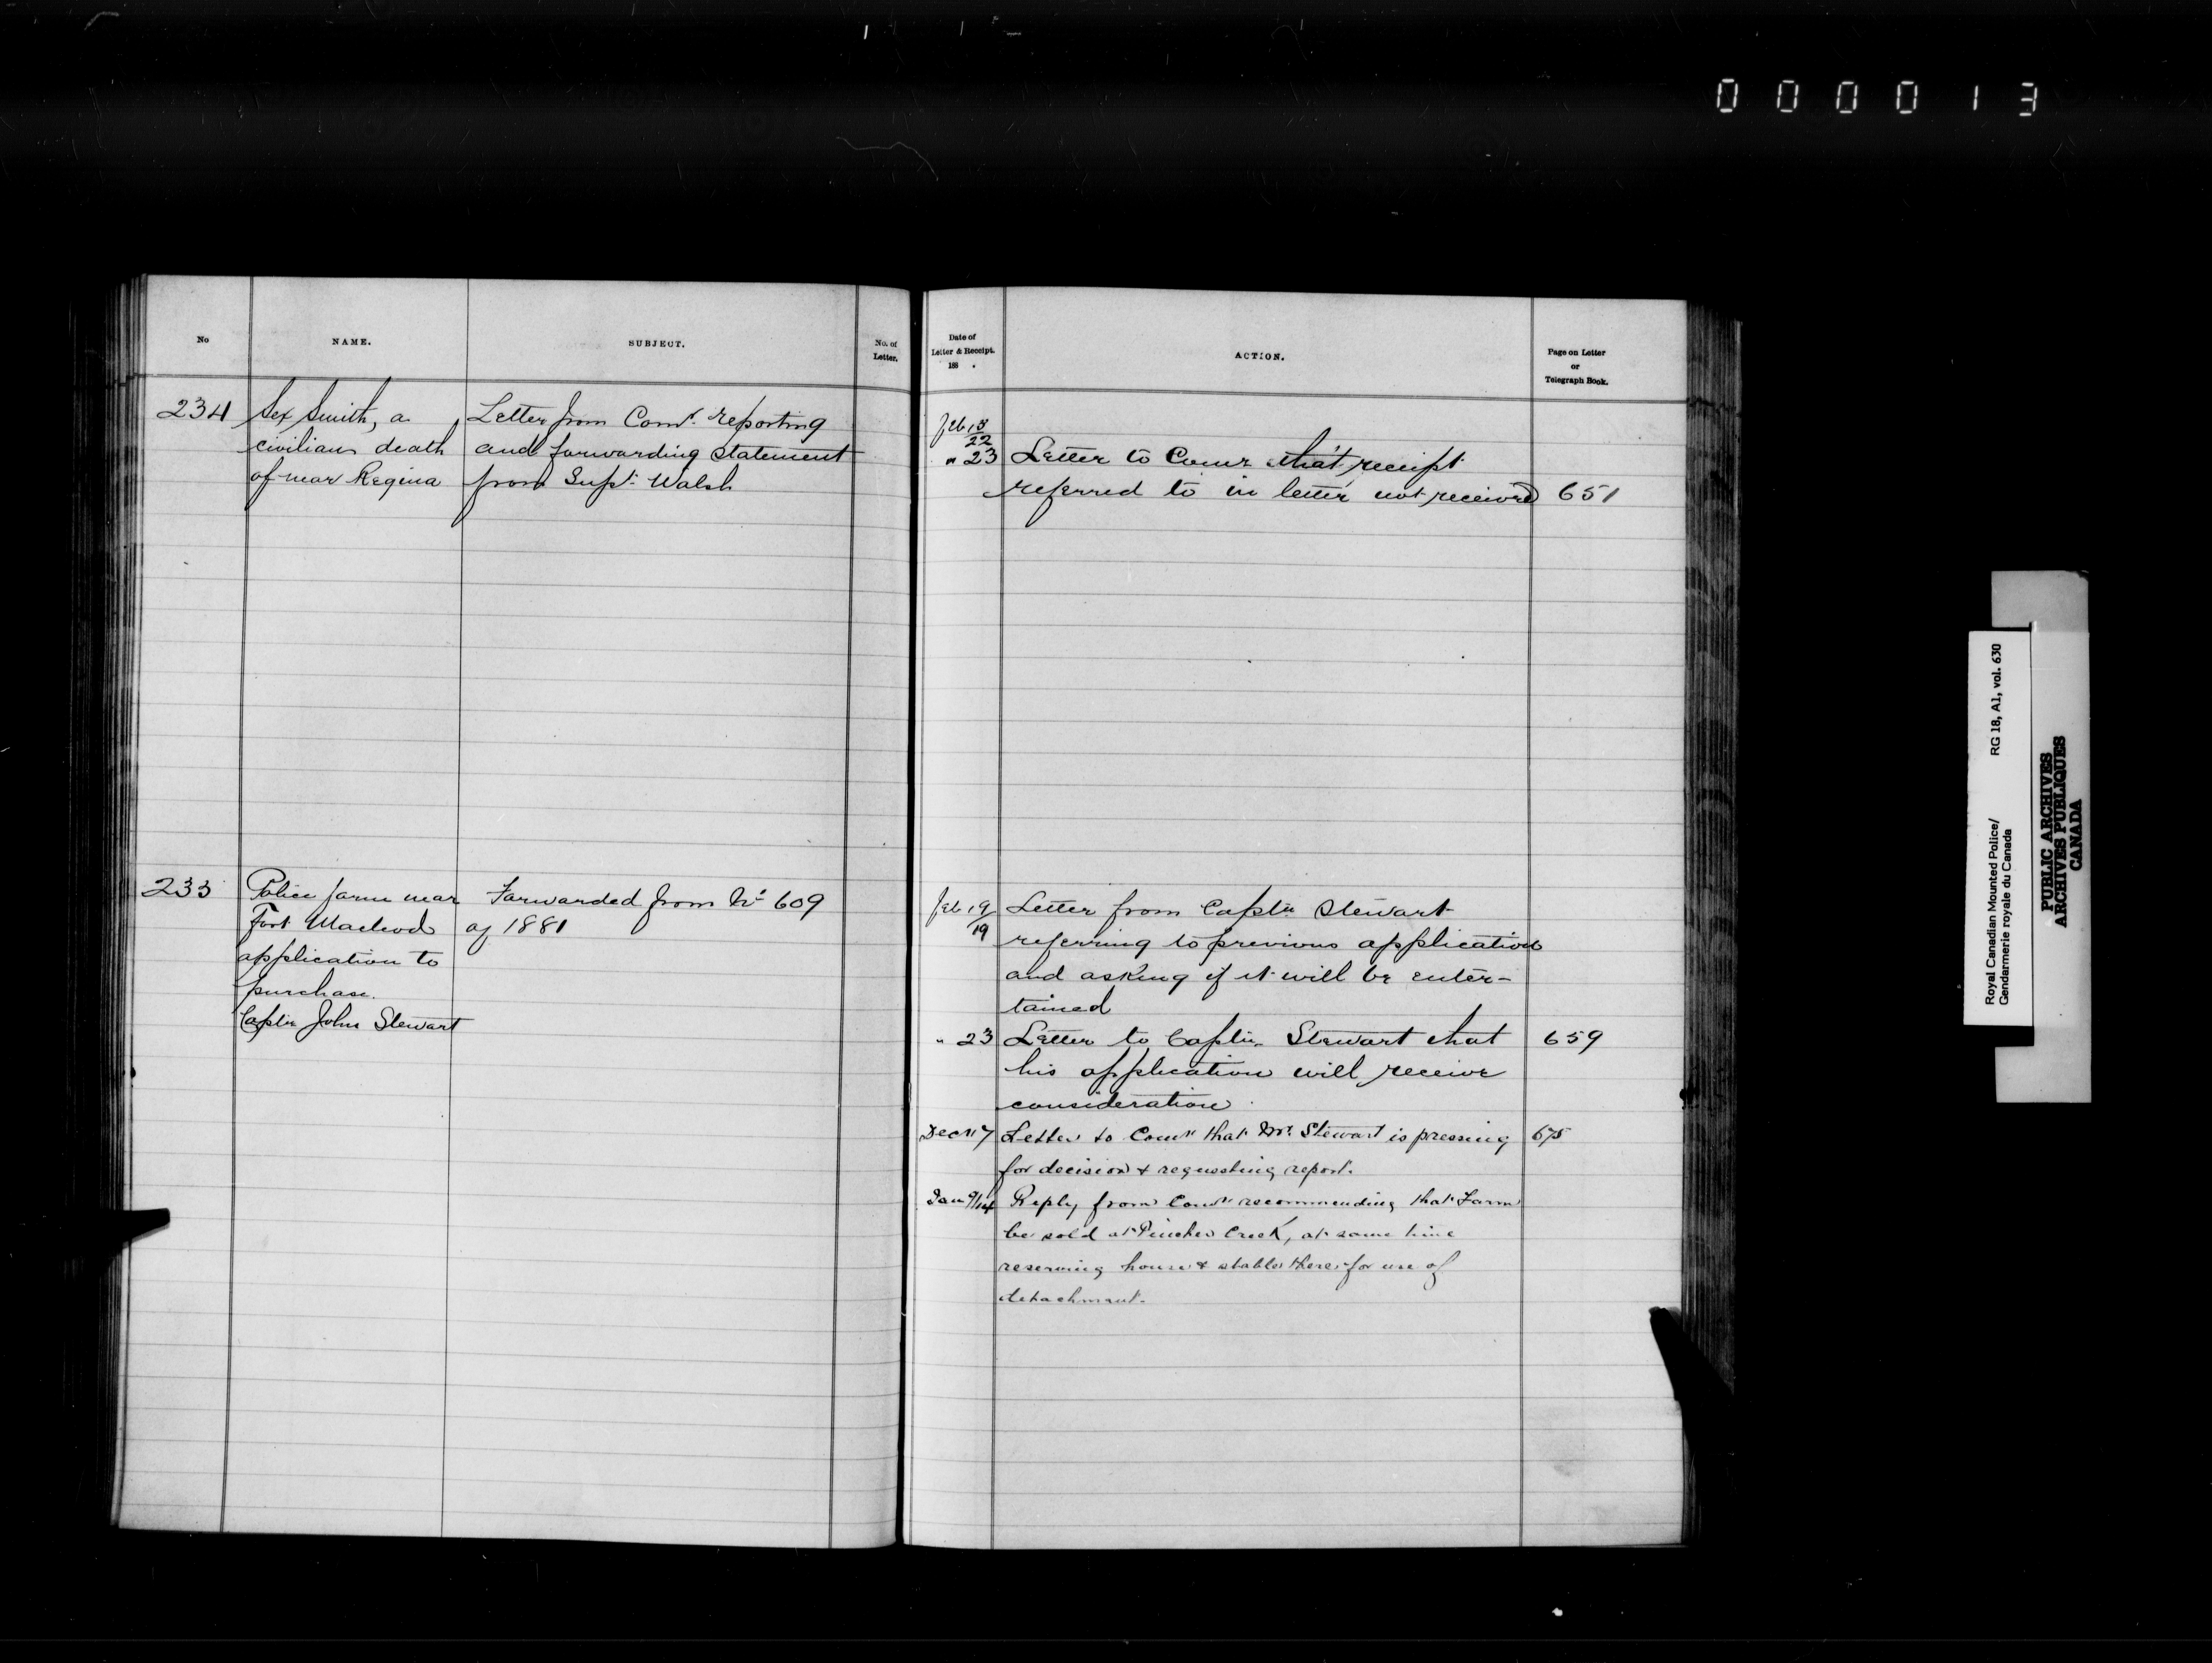 000013
No
NAME.
SUBJECT.
No. of
Letter.
Date of
Letter & Receipt.
188 .
ACTION.
Page on Letter
or
Telegraph Book.
234
Sex Smith, a
civilian death
of near Regina
Letter from Comr. reporting
and forwarding statement
from Supt. Walsh
Feb 18
22
" 23
Letter to Comr that receipt
referred to in letter not received
651
233
Police farm near
Fort Macleod
application to
purchase.
Captn John Stewart
Forwarded from No 609
of 1881
Feb 19
19
Letter from Captn Stewart
referring to previous application
and asking if it will be enter-
tained
" 23
Letter to Captn. Stewart that
his application will receive
consideration
659
Dec
Letter to Comr that Mr. Stewart is pressing
for decision & requesting report.
675
Jan 9/14
Reply from Comr recommending that Farm
be sold at Pincher Creek, at same time
reserving house & stables there for use of
detachment.
Royal Canadian Mounted Police/
Gendarmerie royale du Canada
RG 18, A1, vol. 630
PUBLIC ARCHIVES
ARCHIVES PUBLIQUES
CANADA